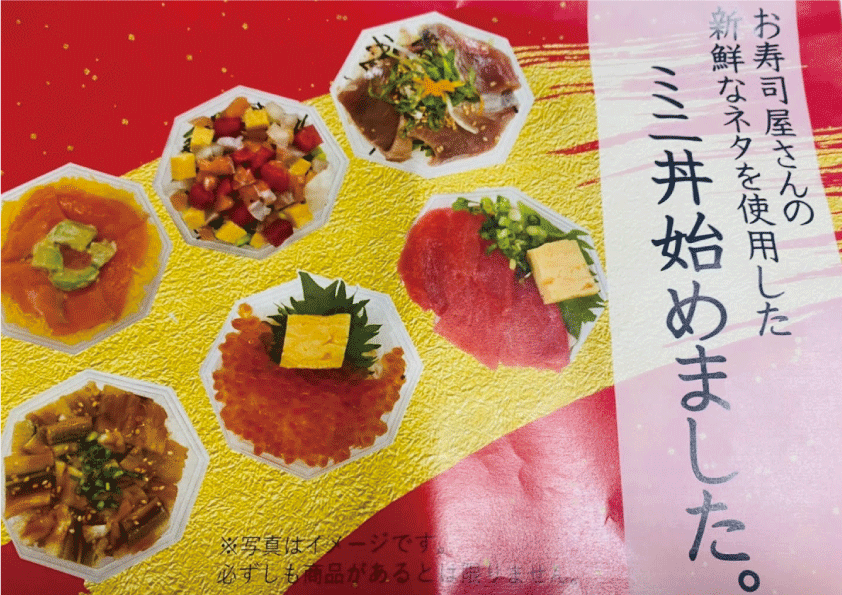 お寿司屋さんの
新鮮なネタを使用した
ミニ丼始めました。
※写真はイメージです。
必ずしも商品があるとは限りません。